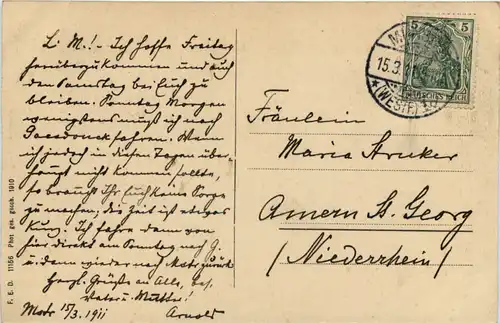 L. M.! - Ich hoffe Freitag
herüberzukommen und auch
den Samstag bei Euch zu
bleiben. Sonntag Morgen
wenigstens muß ich nach
Gaesdonck fahren. Wenn
ich jedoch in diesen Tagen über-
haupt nicht kommen sollte,
so braucht Ihr Euch keine Sorge
zu machen, die Zeit ist etwas
kurz. Ich fahre dann von
hier direkt am Sonntag nach G.
u. dann wieder nach zurück
Herzl. Grüße an Alle, bes.
Vater u. Mutter!
15/3. 1911 Arnold
F. E. D. 11156 Phot. ges. gesch. 1910
5
DEUTSCHES REICH
15.3.
(WESTF.)
Fräulein
Maria Struker
Amern St. Georg
(Niederrhein)